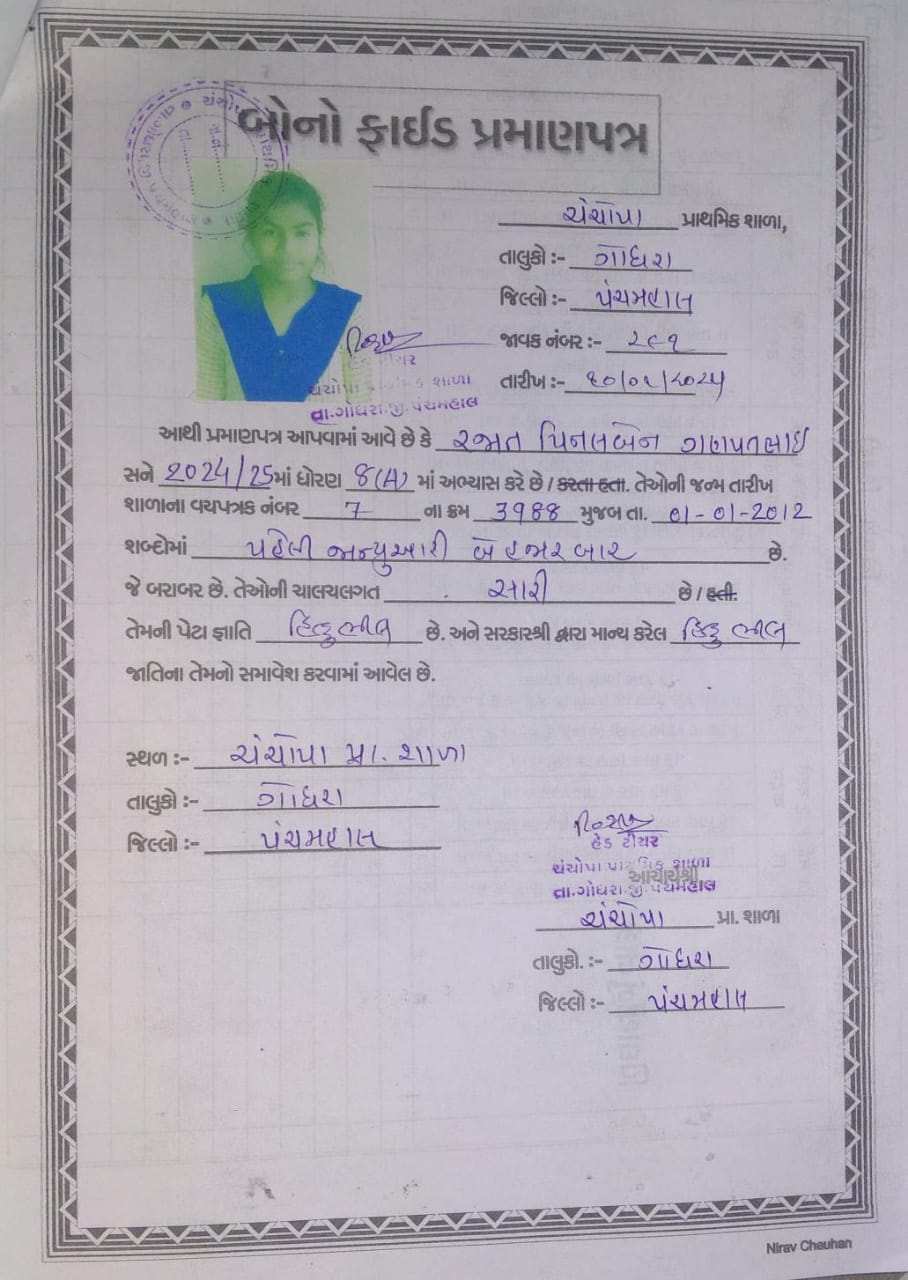 બોનો ફાઈડ પ્રમાણપત્ર
ચંચોપા પ્રાથમિક શાળા,
તાલુકો :- ગોધરા
જિલ્લો :- પંચમહાલ
જાવક નંબર :- ૨૯૧
તારીખ :-
હેડ ટીચર
ચંચોપા પ્રાથમિક શાળા
તા.ગોધરા.જી.પંચમહાલ
આથી પ્રમાણપત્ર આપવામાં આવે છે કે રજાત પિનલબેન ગણપતભાઈ
સને 2024/25માં ધોરણ 8(A) માં અભ્યાસ કરે છે / કરતા હતા. તેઓની જન્મ તારીખ
શાળાના વયપત્રક નંબર 7 ના ક્રમ 3988 મુજબ તા. 01-01-2012
શબ્દોમાં પહેલી જાન્યુઆરી બે હજાર બાર છે.
જે બરાબર છે. તેઓની ચાલચલગત સારી છે / હતી.
તેમની પેટા જ્ઞાતિ હિન્દુ ભીલ છે. અને સરકારશ્રી દ્વારા માન્ય કરેલ હિન્દુ ભીલ
જાતિના તેમનો સમાવેશ કરવામાં આવેલ છે.
સ્થળ :- ચંચોપા પ્રા. શાળા
તાલુકો :- ગોધરા
જિલ્લો :- પંચમહાલ
હેડ ટીચર
ચંચોપા પ્રાથમિક શાળા
આચાર્યશ્રી
તા.ગોધરા.જી.પંચમહાલ
ચંચોપા પ્રા. શાળા
તાલુકો. :- ગોધરા
જિલ્લો :- પંચમહાલ
Nirav Chauhan